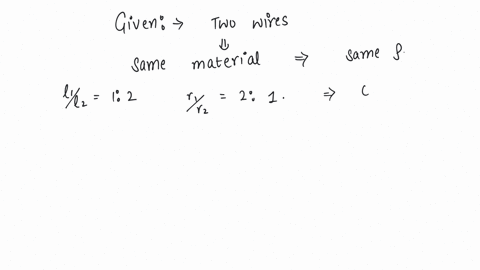 Given:→ Two wires
⇓
same material ⇒ same ρ.
l₁/l₂ = 1:2 r₁/r₂ = 2:1. ⇒ C